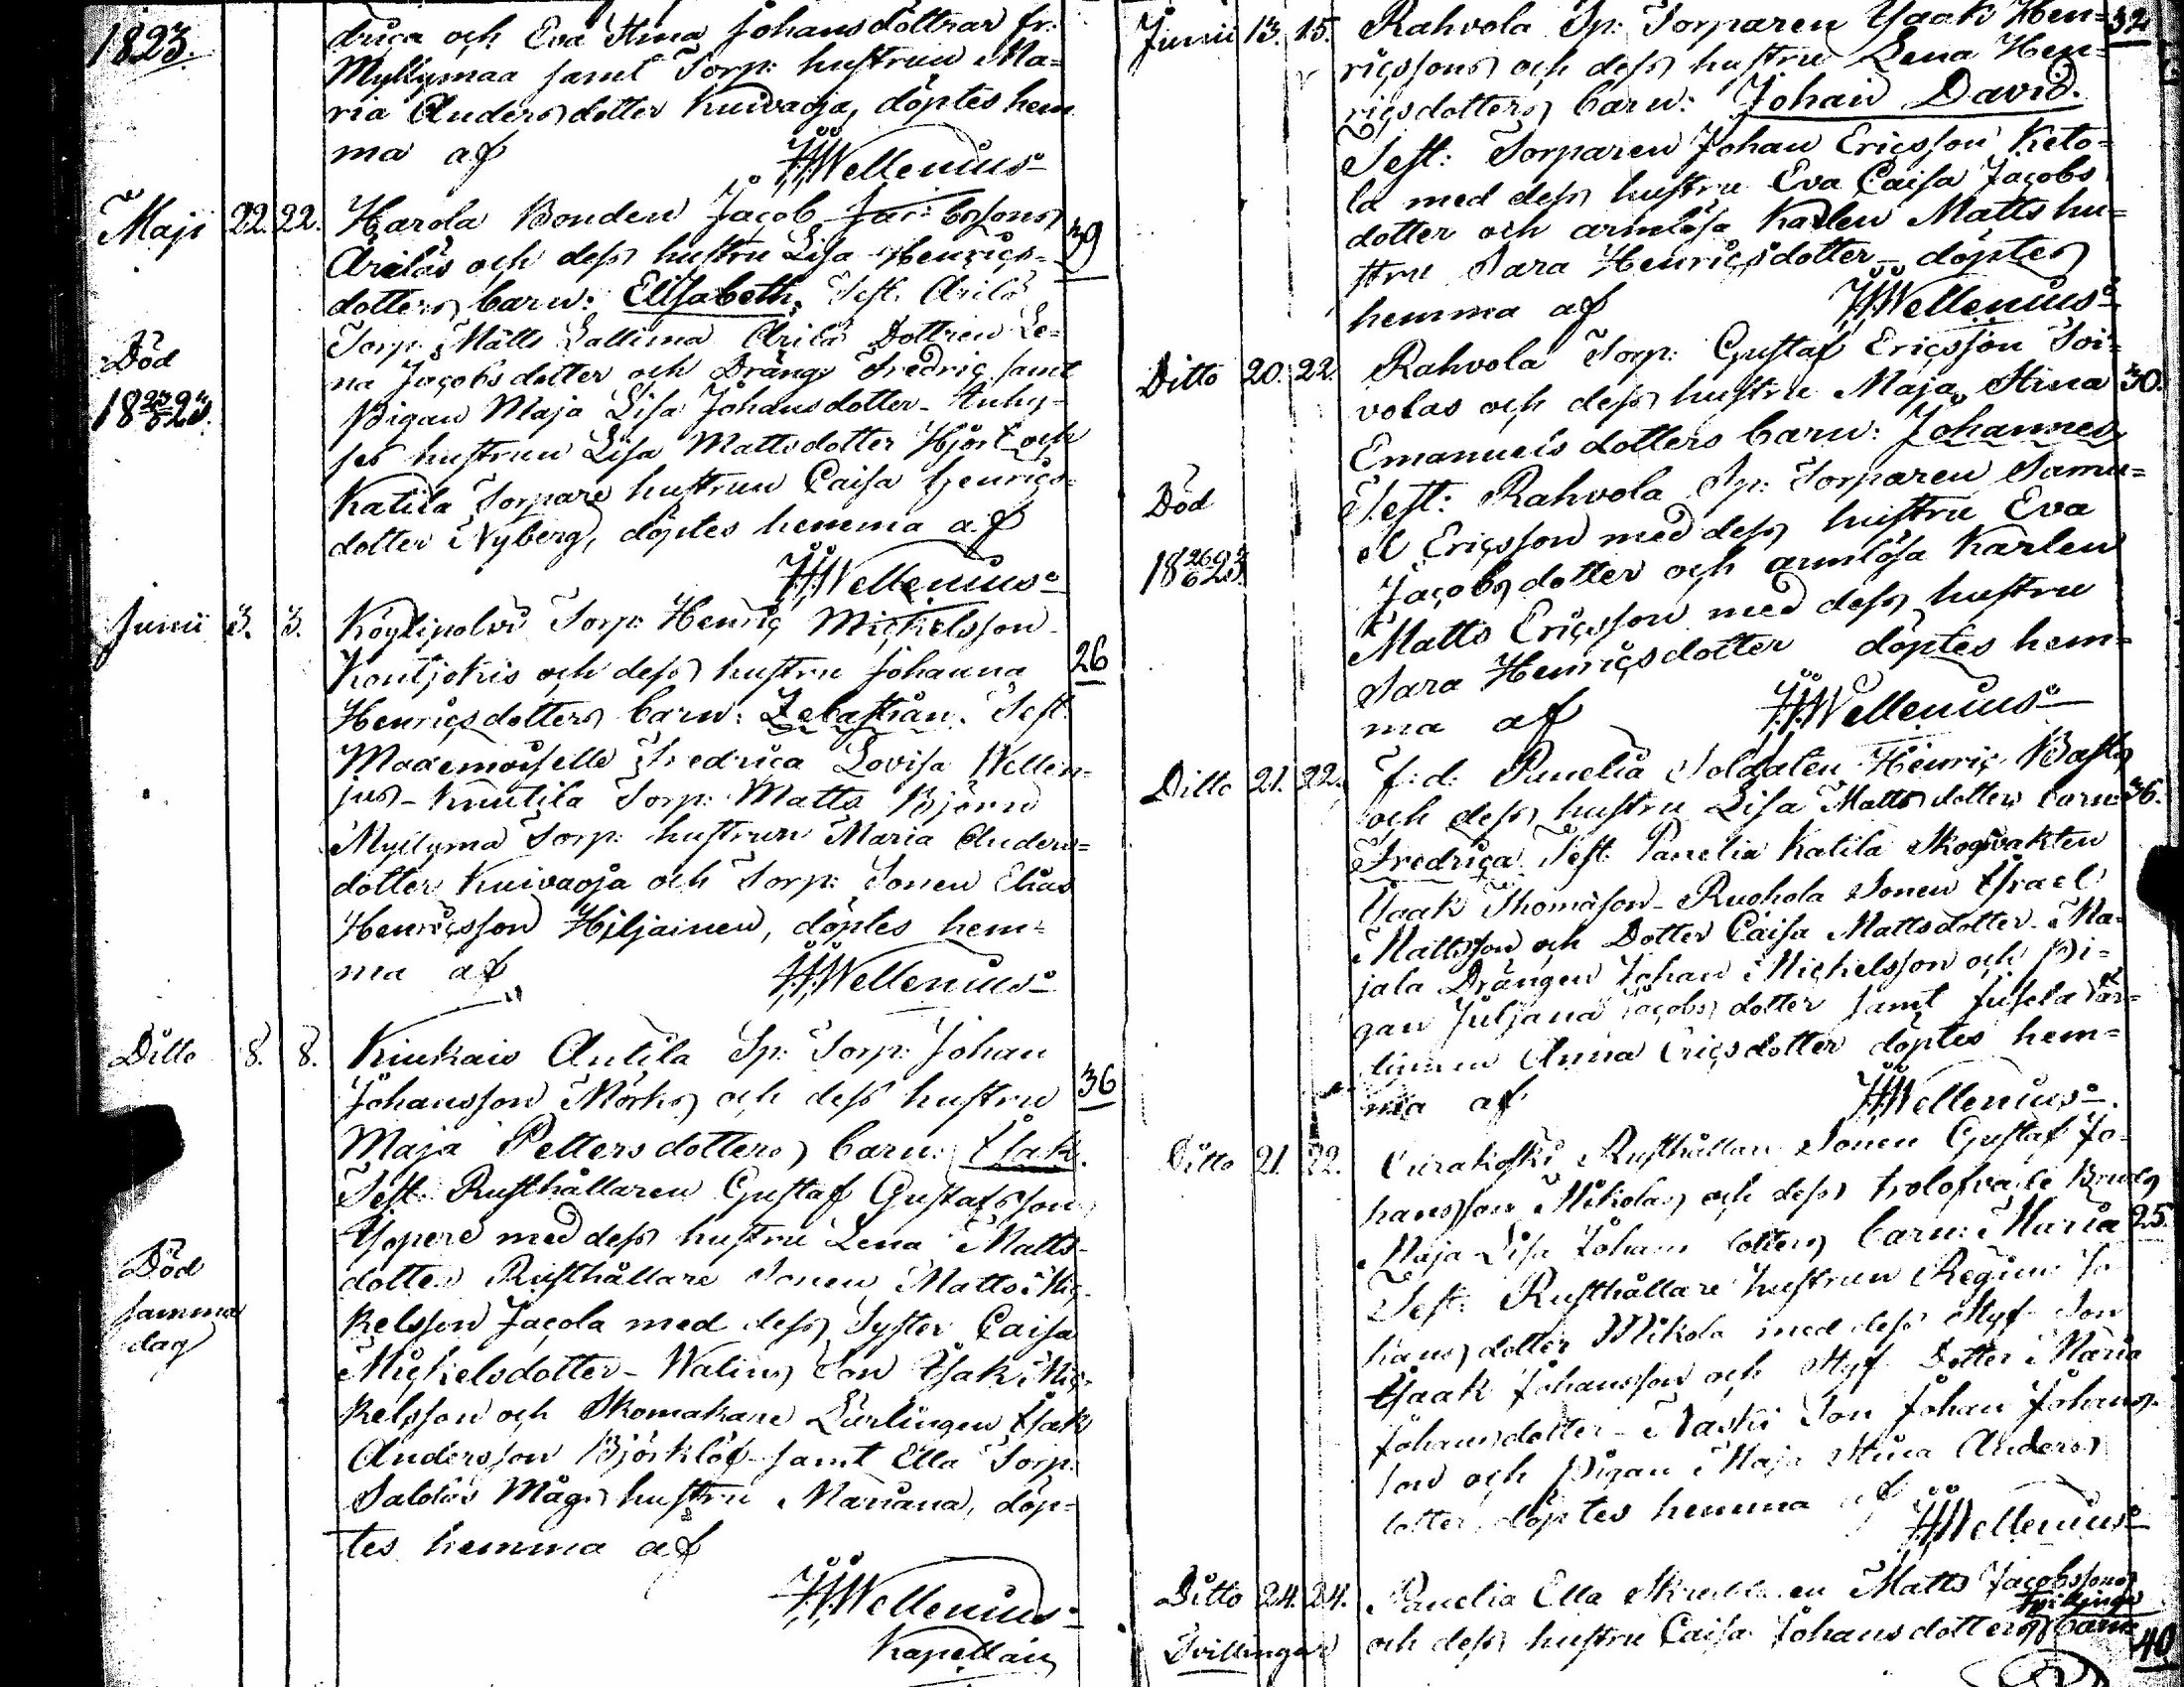 1823.
driça och Eva Stina Johansdottrar fr:
Myllymaa samt Torp: hustrun Ma-
ria Andersdotter Kuivaoja, döptes hem
ma af HWellenius
Maji 22. 22. Harola Bonden Jacob Jacobssons 39
Arilas och dess hustru Lisa Henriçs-
dotters barn: Elisabeth, Test. Arilá
Död Torp. Matts Lallima Arila Dottren Le-
na Jaçobsdotter och Dräng Fredriç samt
18 23/6 23. Pigan Maja Lisa Johansdotter - Anhy-
ses hustrun Lisa Mattsdotter Hjort och
Katila Torpare hustrun Caisa Henriçs-
dotter Nyberg, döptes hemma af
HWellenius
Junii 3. 3. Köylipolvi Torp: Henriç Miçkelsson
Kontjokis och dess hustru Johanna 26
Henriçsdotters barn: Zebastian. Test.
Mademoiselle Fredrica Lovisa Wellen-
jus - Knutila Torp: Matts Björn
Myllyma Torp: hustrun Maria Anders-
dotter Kuivaoja och Torp: Sonen Elias
Henriçsson Hiljainen, döptes hem-
ma af HWellenius
Ditto 8. 8. Kiukais Antila Sp: Torp: Johan
Johansson Mörks och dess hustru 36
Maja Pettersdotters barn: Isak.
Test. Rusthållaren Gustaf Gustafsson
Yopere med dess hustru Lena Matts-
Död dotter Rusthållare Sonen Matts Miç-
samma kelsson Jaçola med dess Syster Caisa
dag Miçkelsdotter - Walins Son Isak Miç-
kelsson och Skomakare Lärlingen Isak
Andersson Björklöf samt Ella Torp.
Saldos Mågs hustru Mariana, döp-
tes hemma af
HWellenius
Kapellan
Junii 13. 15. Rahvola Sp: Torparen Ysaak Hen- 32
riçssons och dess hustru Lena Hen-
riçsdotters barn: Johan David.
Test: Torparen Johan Ericsson Keto-
la med dess hustru Eva Caisa Jaçobs
dotter och armlösa Karlen Matts hu-
stru Sara Henriçsdotter - döptes
hemma af HWellenius
Ditto 20. 22. Rahvola Torp: Gustaf Ericsson Soi-
volas och dess hustru Maja Stina 30.
Emanuelsdotters barn: Johannes
Död Test: Rahvola Sp: Torparen Samu-
el Ericsson med dess hustru Eva
18 26/6 23. Jaçobsdotter och armlösa Karlen
Matts Ericsson med dess hustru
Sara Henriçsdotter döptes hem-
ma af HWellenius
Ditto 21. 22. f:d: Panelia Soldaten Henriç Basts
och dess hustru Lisa Mattsdotters barn: 36.
Fredriça Test. Panelia Katila Skogvakten
Ysaak Thomasson - Ruohola Sonen Israel
Mattsson och Dotter Caisa Mattsdotter - Ma-
jala Drängen Johan Miçkelsson och Pi-
gan Juljana Jaçobsdotter samt
Anna Ericsdotter döptes hem-
ma af HWellenius
Ditto 21. 22. Rusthållare Sonen Gustaf Jo-
hansson Mikolas och dess trolofvade Bruds
Maja Lisa Johansdotters barn: Maria 25.
Test: Rusthållare hustrun Regina Jo-
hansdotter Mikola med dess Styf Son
Ysaak Johansson och Styf Dotter Maria
Johansdotter - Naski Son Johan Johans-
son och Pigan Maja Stina Anders
dotter döptes hemma af HWellenius
Ditto 24. 24. Panelia Ella Matts Jacobssons
Tvillingar och dess hustru Caisa Johansdotters Tvillinge barn 40